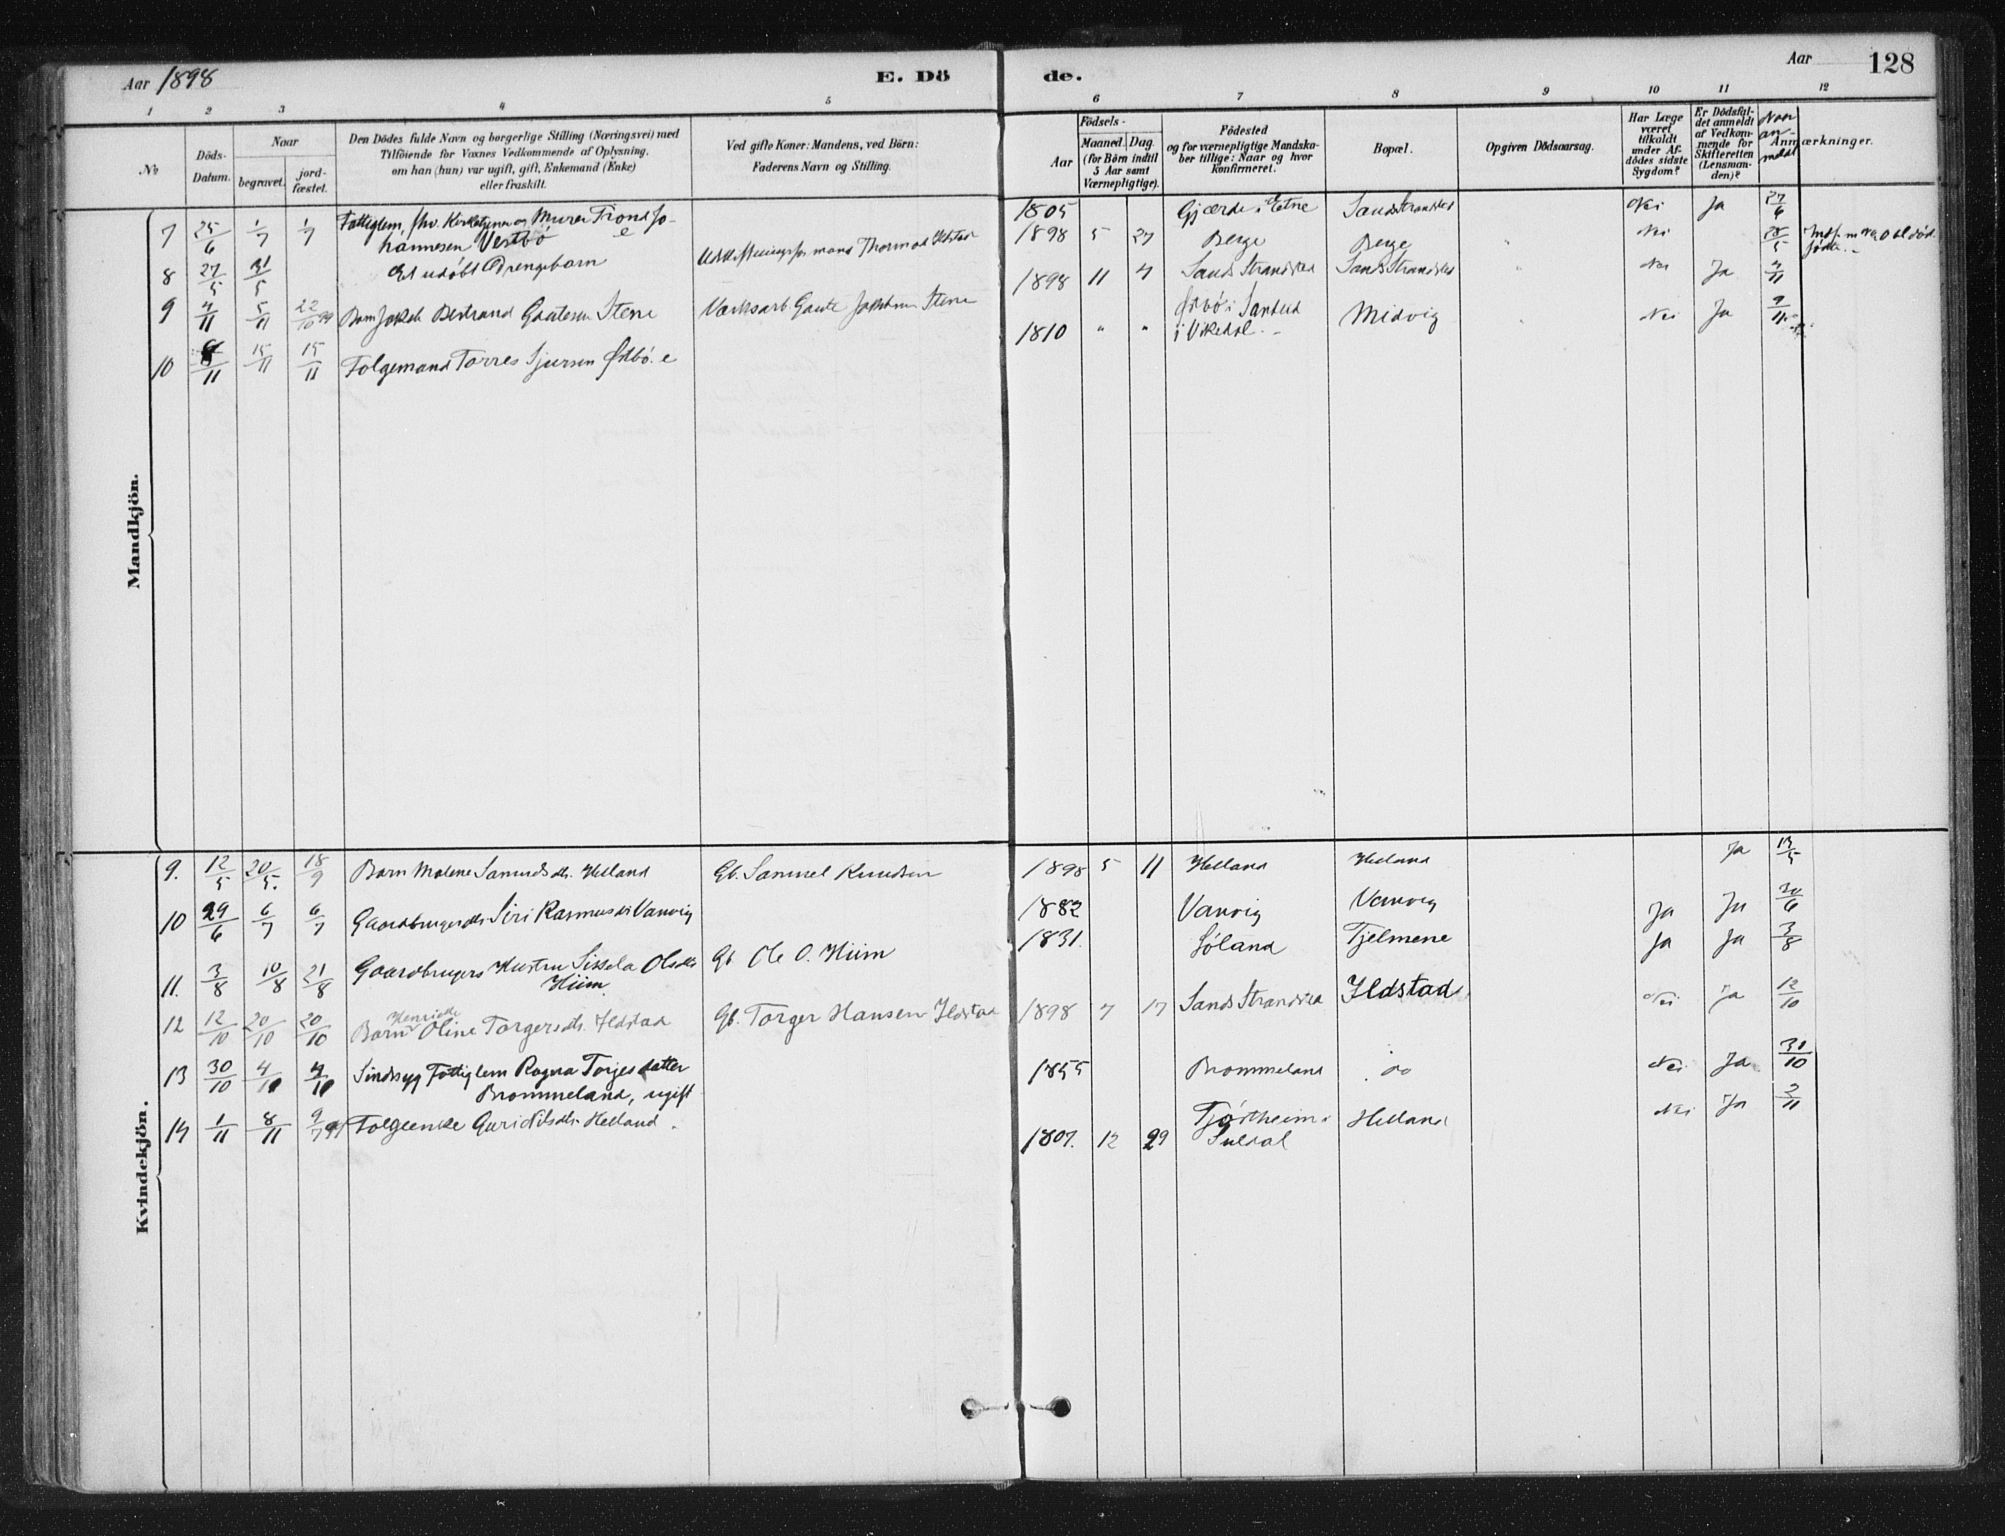 Aar 1898
E. Dö
de.
Aar
128
1 2 3 4 5 6 7 8 9 10 11 12
No
Döds-
Datum.
Naar
begravet.
jord-
fæstet.
Den Dödes fulde Navn og borgerlige Stilling (Næringsvei) med
Tilföiende for Voxnes Vedkommende af Oplysning.
om han (hun) var ugift, gift, Enkemand (Enke)
eller fraskilt.
Ved gifte Koner: Mandens, ved Börn:
Faderens Navn og Stilling.
Aar
Födsels-
Maaned. Dag.
(for Börn indtil
5 Aar samt
Værnepligtige).
Födested
og for værnepligtige Mandska-
ber tillige: Naar og hvor
konfirmeret.
Bopæl.
Opgiven Dödsaarsag.
Har Læge
været
tilkaldt
under Af-
dödes sidste
Sygdom?
Er Dödsfal-
det anmeldt
af Vedkom-
mende for
Skifteretten
(Lensman-
den)?
Anmærkninger.
Naar
an-
meldt
Mandkjön.
7 25/6 1/7 1/7 Fattiglem, fhv. Kirketjener og Murer Trond Jo-
hannesen Vestbö e 1805 Gjærde i Etne Sands Strandsted Nei Ja 27/6
8 27/5 31/5 Et udöbt Drengebarn Thormod Ilstad 1898 5 27 Berge Berge Nei 28/5
9 4/11 5/11 22/10 99 Barn Jakob Bertrand Gautesen Stene Værksarb Gaute Jakobsen Stene 1898 11 4 Sands Strandsted Sands Strandsted Nei Ja 4/11
10 8/11 15/11 15/11 Folgemand Torres Sjursen Östbö. e 1810 " " Östbö i Sandeid
i Vikedal.- Midvig Nei Ja 9/11
Kvindekjön.
9. 12/5 20/5. 18/9 Barn Malene Samuelsdtr. Helland Gb. Samuel Knudsen 1898 5 11 Helland Helland Ja 13/5
10 29/6 6/7 6/7 Gaardbrugerdtr Siri Rasmusdtr Vanvig 1882 Vanvig Vanvig Ja Ja 30/6
11. 3/8 10/8 21/8 Gaardbrugers Hustru Sissela Olsdtr
Hiim Gb Ole O. Hiim 1831. Söland Tjelmene Ja Ja 3/8
12 12/10 20/10 20/10 Barn Henrikke Oline Torgersdtr. Ildstad Gb. Torger Hansen Ildstad 1898 7 17 Sands Strandsted Ildstad Nei Ja 12/10
13 30/10 4/10 4/10 Sindssyg Fattiglem Ragna Torjesdatter
Brommeland, ugift 1855 Brommeland do Nei Ja 31/10
14 1/11 8/11 9/7 99 Folgeenke Guri Nilsdtr. Helland. 1807. 12 29 Tjöstheim i
Suldal Helland Nei Ja 2/11